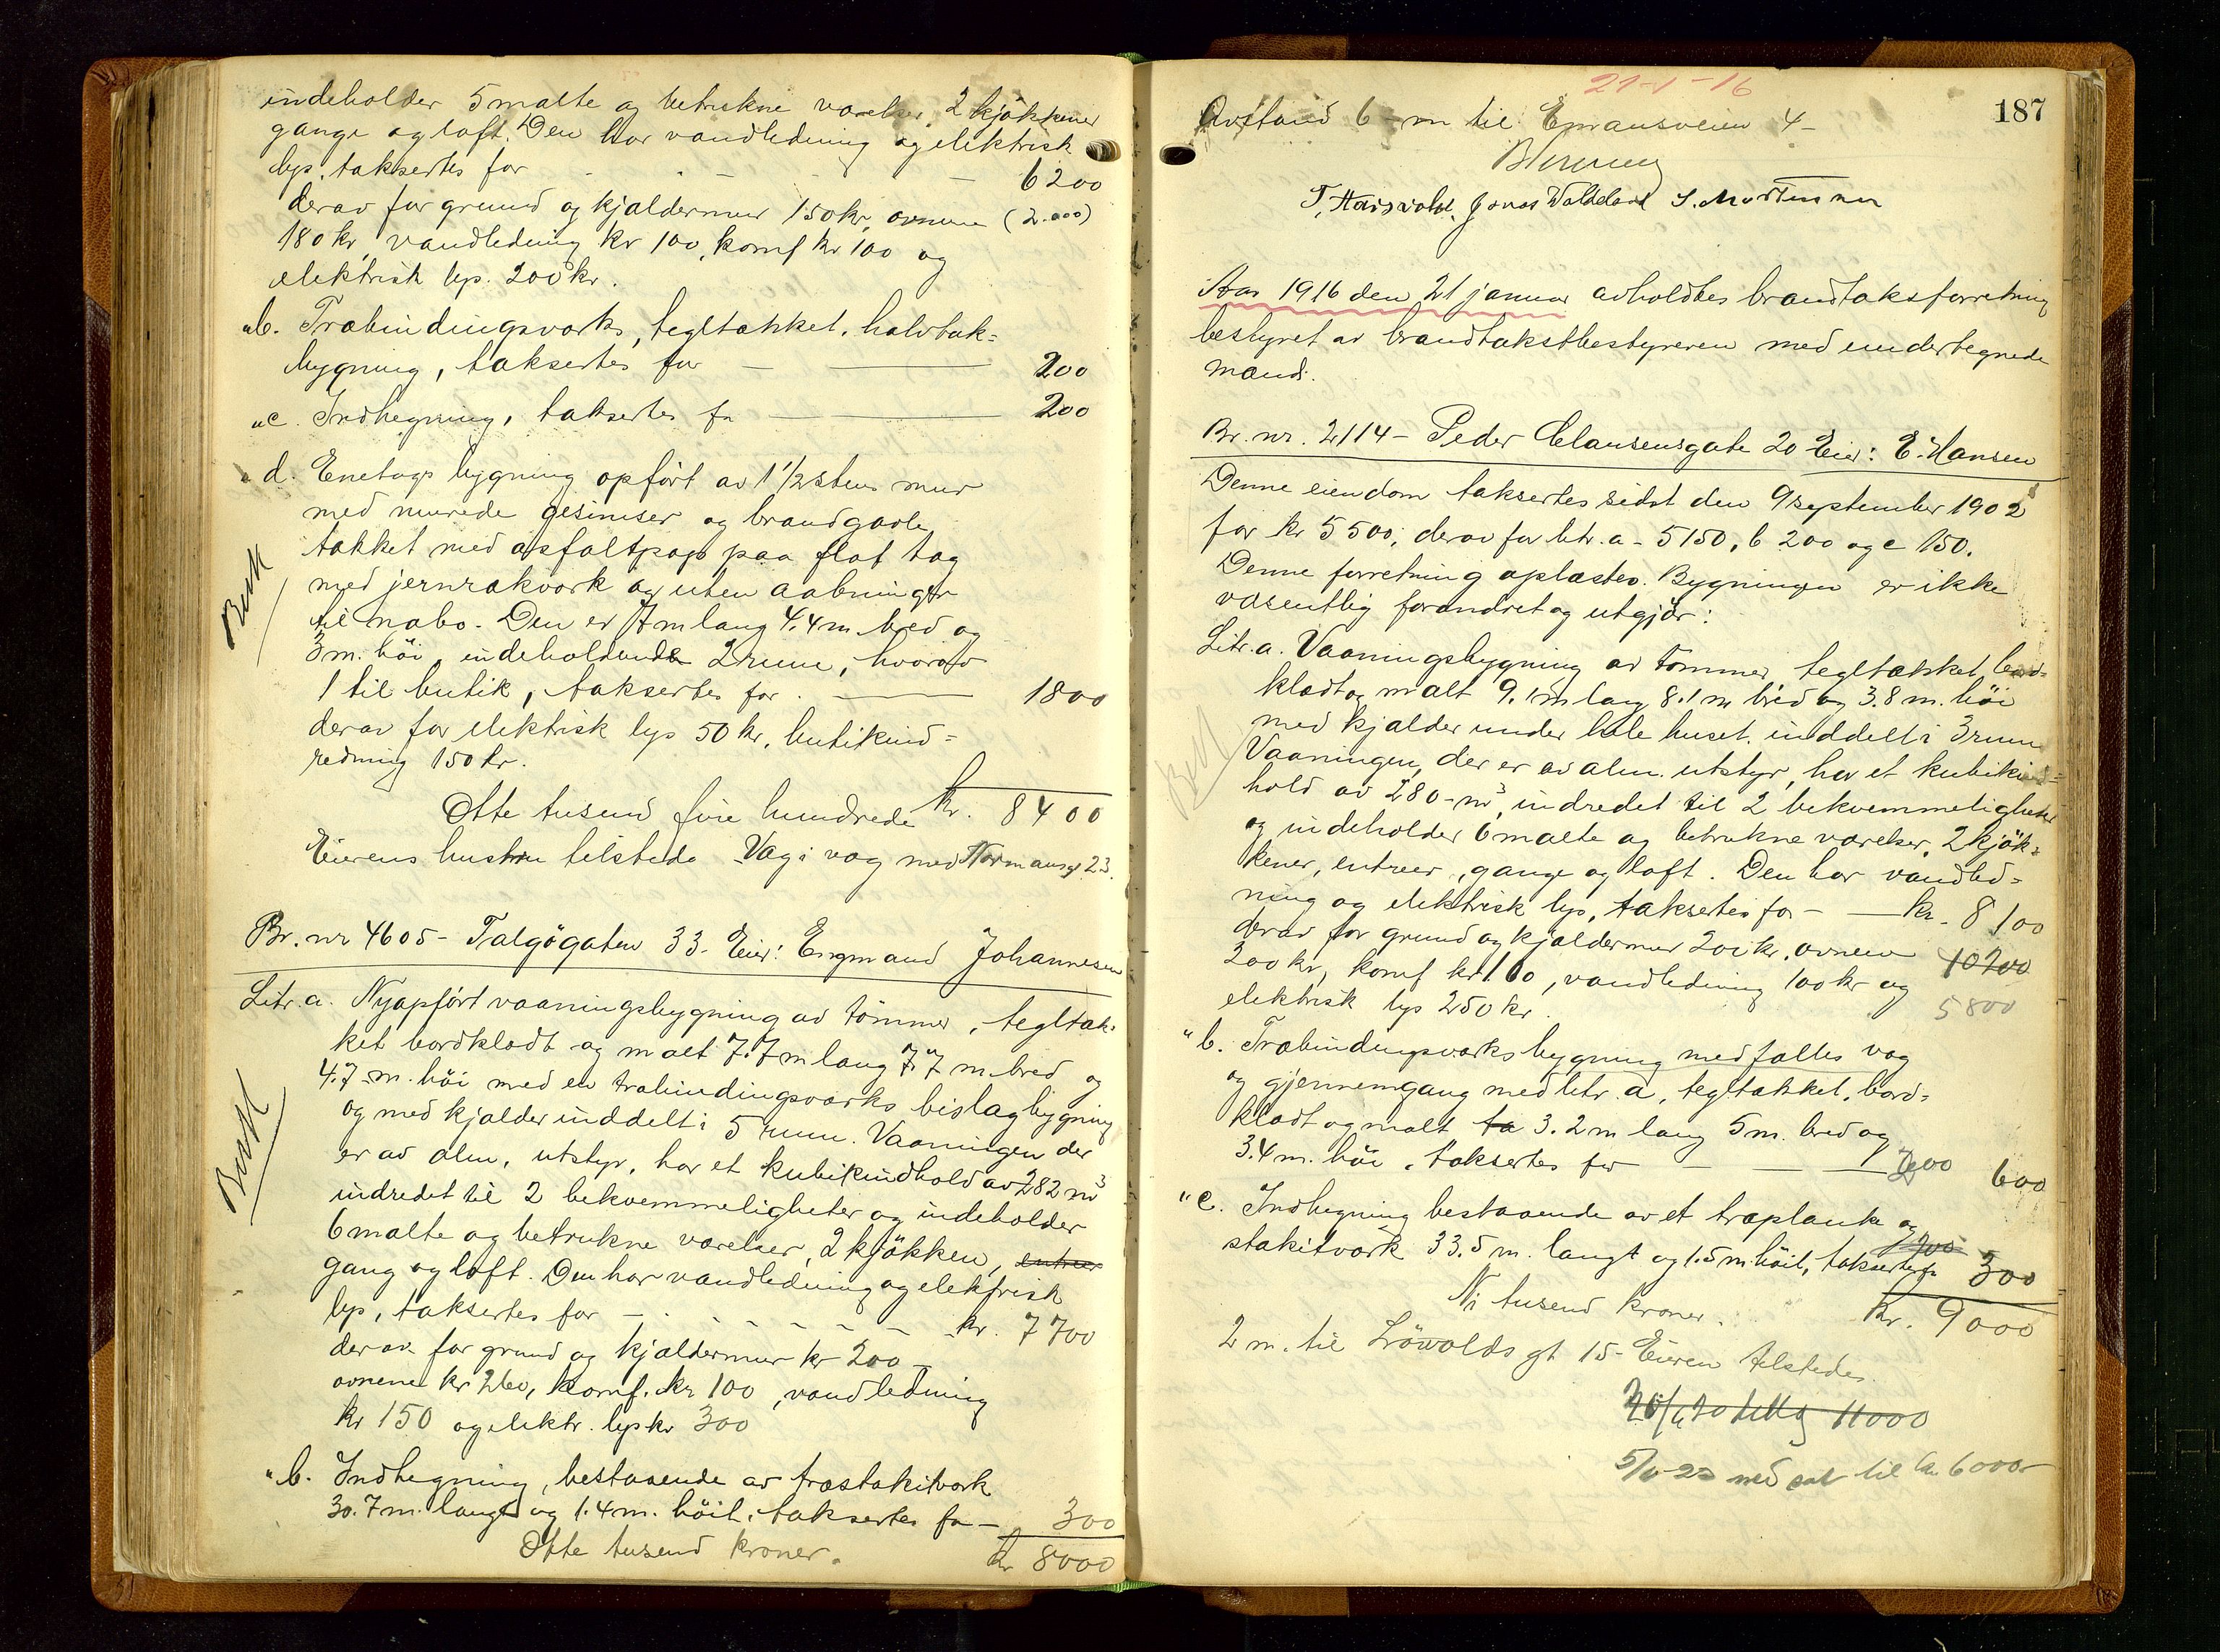 indeholder 5 malte og betrukne værelser, 2 kjøkkener
gange og loft. Den har vandledning og elektrisk
lys, taksertes for - - - - 6200
derav for grund og kjældermur 150 kr, ovnene (2.000)
180 kr, vandledning kr 100, komf kr 100 og
elektrisk lys. 200 kr.
"b. Træbindingsverks, tegltækket, halvtak=
bygning, taksertes for — — 200
"c. Indhegning, taksertes fr — — 200
" d. Enetags bygning opført av 1 1/2 stens mur
med murede gesimser og brandgavle,
tækket med asfaltpap paa flat tag
med jernrækværk og uten aabninger
til nabo. Den er 7m lang 4.4 m. bred og
3 m. høi, indeholdende 2 rum, hvorav
1 til butik, taksertes for. — 1800
derav for elektrisk lys 50 kr, butikind=
redning 150 kr.
Otte tusend fire hundrede kr. 8400
Eierens hustru tilstede Væg i væg med Normansgt 23.
Br. nr 4605 - Talgøgaten 33- Eier: Engmand Johannesen
Litr. a. Nyopført vaaningsbygning av tømmer, tegltæk=
ket bordklædt og malt 7.7 m lang 7.7 m. bred og
4.7 m. høi med en træbindingsverks bislagbygning
og med kjælder inddelt i 5 rum. Vaaningen der
er av alm. utstyr, har et kubikindhold av 282 m3
indredet til 2 bekvemmeligheter og indeholder
6 malte og betrukne værelser, 2 kjøkken, entreer
gang og loft. Den har vandledning og elektrisk
lys, taksertes for - - - - - - kr. 7700
derav for grund og kjældermur kr 200 -
ovnene kr 260, komf. kr 100, vandledning
kr 150 og elektr. lys kr 300
" b. Indhegning, bestaaende av træstakitverk
30.7 m. langt og 1.4 m. høit, taksertes fr — 300
Otte tusend kroner. kr 8000
21-1-16
187
Avstand 6 m til Emausveien 4-
T. Hausvold. Jonas Waldeland S. Mortensen
Aar 1916 den 21 januar avholdtes brandtaksforretning
bestyret av brandtakstbestyreren med undertegnede
mænd.
Br. nr. 2114 - Peder Clausensgate 20 Eier: E. Hansen
Denne eiendom taksertes sidst den 9 september 1902
for kr 5500; derav for litr. a - 5150, b 200 og c 150.
Denne forretning oplæstes. Bygningen er ikke
væsentlig forandret og utgjør:
Litr. a. Vaaningsbygning av tømmer, tegltækket bord=
klædt og malt 9.1 m lang 8.1 m bred og 3.8 m. høi
med kjælder under hele huset, inddelt i 3 rum
Vaaningen, der er av alm. utstyr, har et kubikind=
hold av 280 m3, indredet til 2 bekvemmeligheter
og indeholder 6 malte og betrukne værelser, 2 kjøk=
kener, entreer, gange og loft. Den har vandled=
ning og elektrisk lys, taksertes for — — kr. 8100
derav for grund og kjældermur 200 kr, ovnene 10200
200 kr, komf kr 100, vandledning 100 kr og 5800
elektrisk lys 250 kr.
" b. Træbindingsverksbygning med fælles væg
og gjennemgang med litr. a, tegltækket, bord=
klædt og malt 3.2 m lang 5 m. bred og
3.4 m. høi, taksertes for — — — 600
" c. Indhegning bestaaende av et træplanke og
stakitverk 33.5 m. langt og 1.5 m. høit, taksertes fr 300
Ni tusend kroner. kr. 9000
2 m. til Løwolds gt 15- Eieren tilstede.
11000
ned sat til kr 6000-